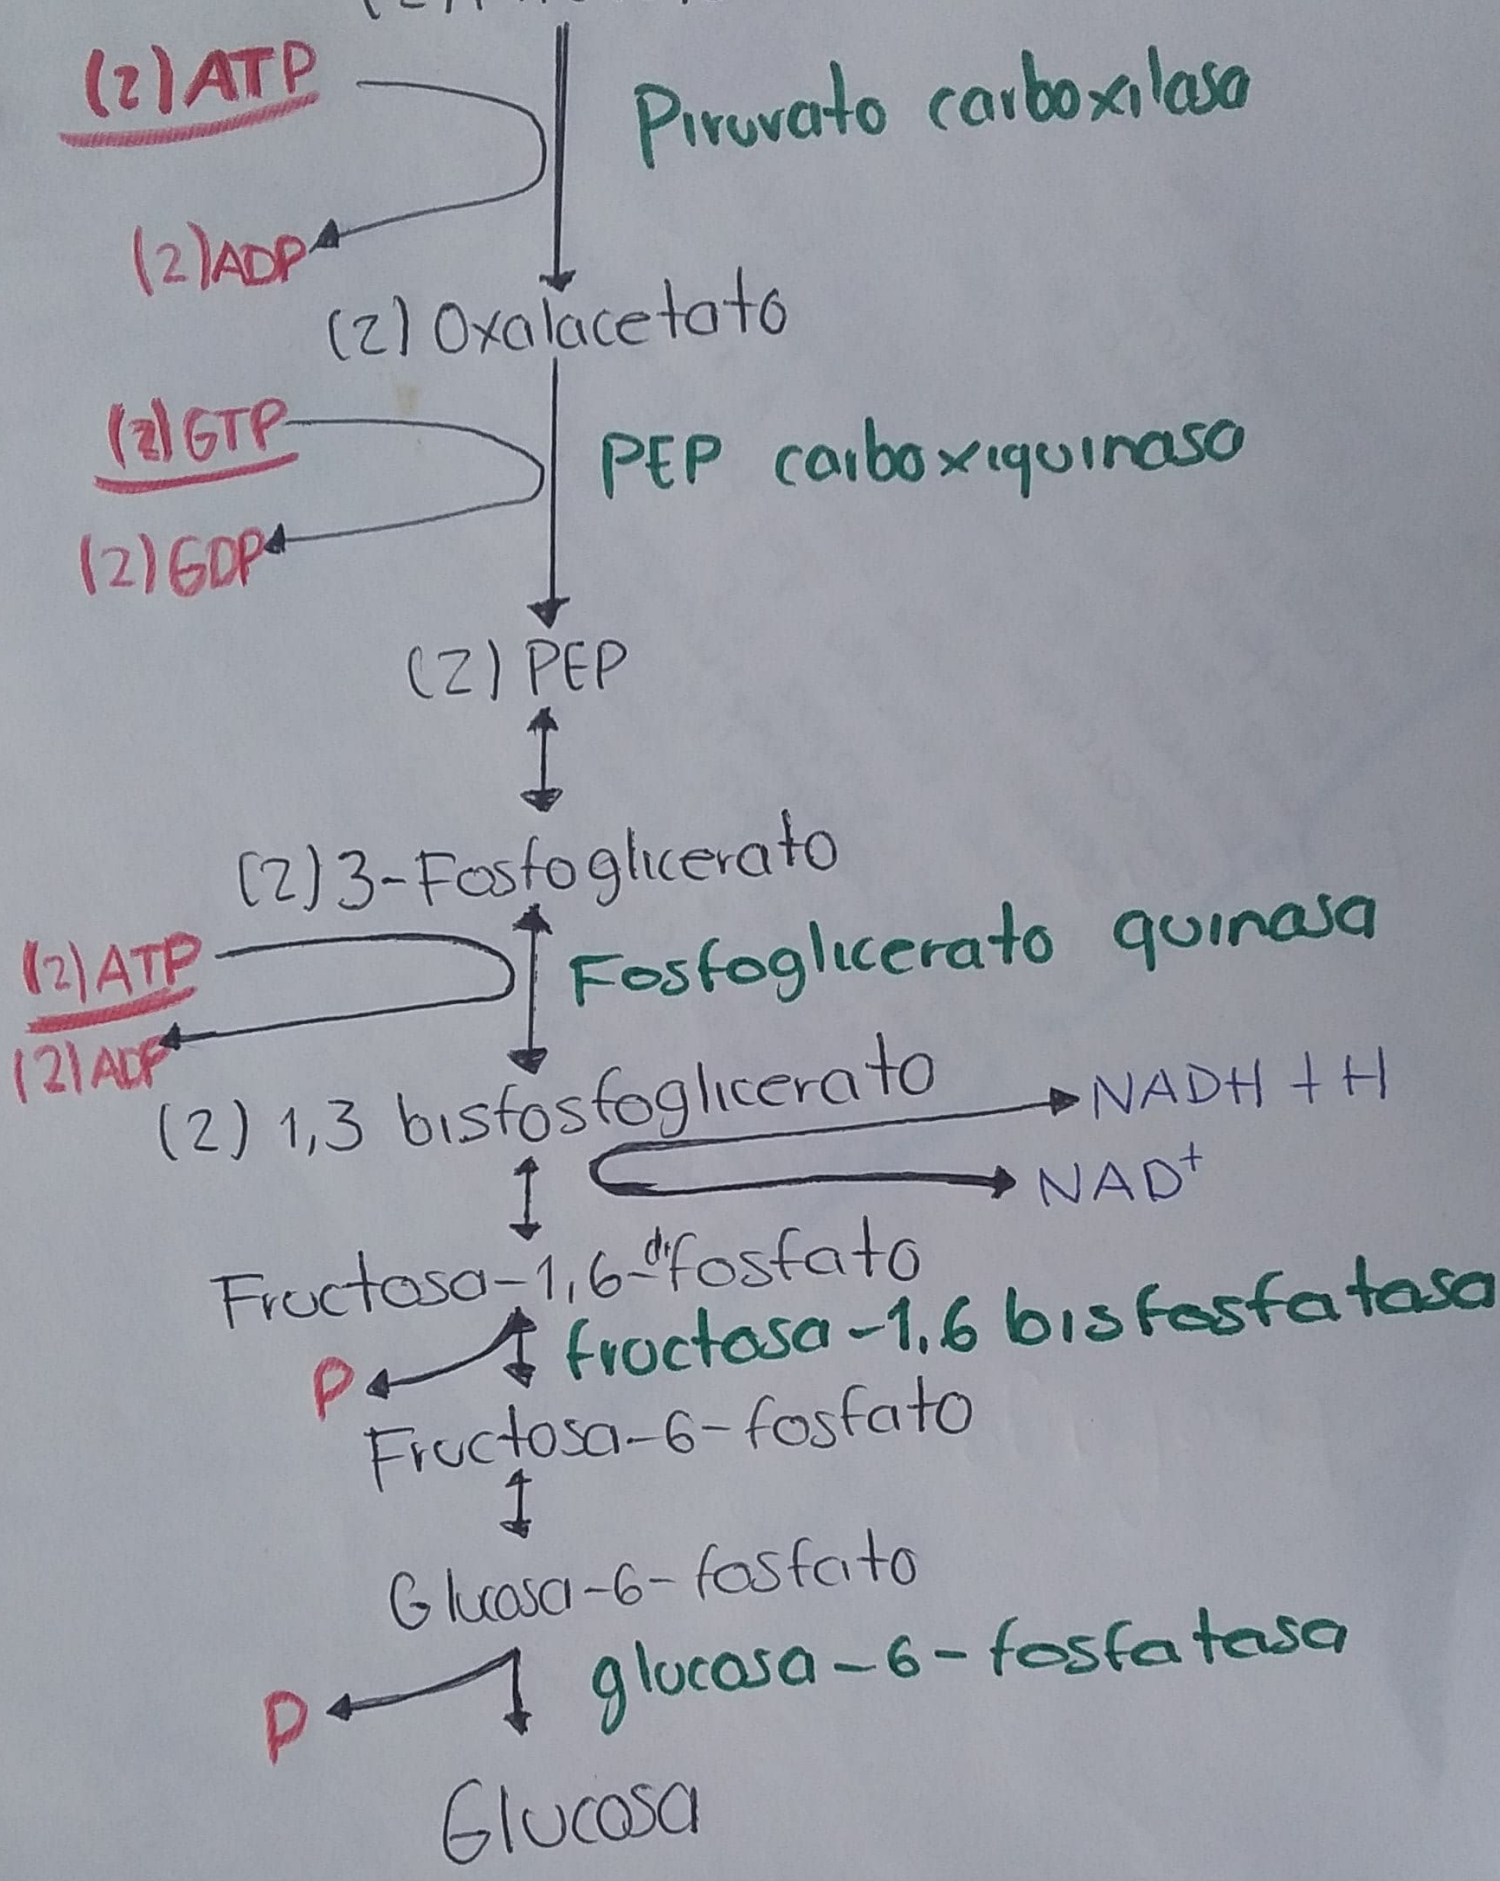 (2) ATP
Piruvato carboxilasa
(2) ADP
(2) Oxalacetato
(2) GTP
PEP carboxiquinasa
(2) GDP
(2) PEP
(2) 3-Fosfoglicerato
(2) ATP
Fosfoglicerato quinasa
(2) ADP
(2) 1,3 bisfosfoglicerato
NADH + H
NAD+
Fructosa-1,6-difosfato
fructosa-1,6 bisfosfatasa
P
Fructosa-6-fosfato
Glucosa-6-fosfato
glucosa-6-fosfatasa
P
Glucosa